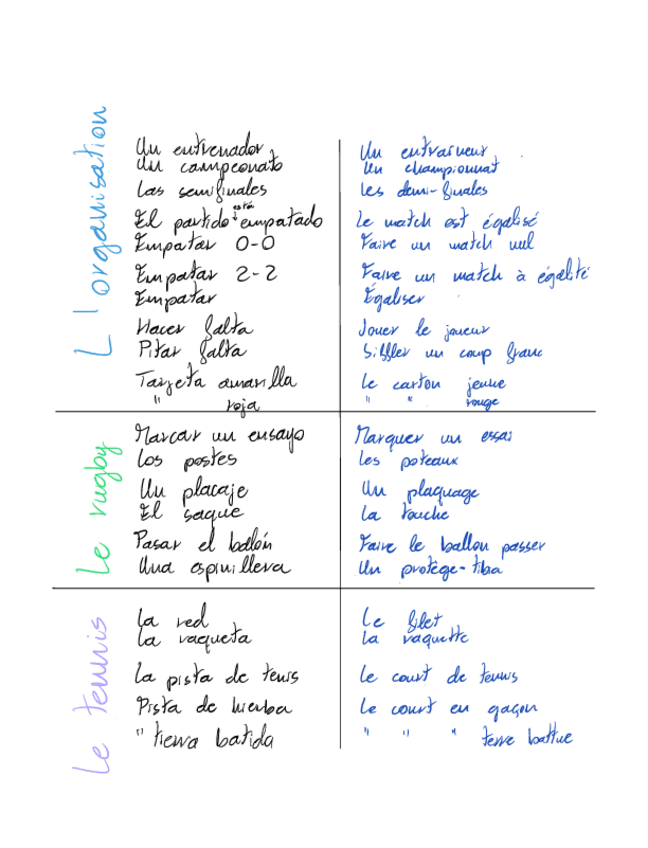 L'organisation
Un entrenador Un entraîneur
Un campeonato Un championnat
Las semifinales Les demi-finales
El partido está empatado Le match est égalisé
Empatar 0-0 Faire un match nul
Empatar 2-2 Faire un match à égalité
Empatar Égaliser
Hacer falta Jouer le joueur
Pitar falta Siffler un coup franc
Tarjeta amarilla Le carton jeune
" roja " " rouge
Le rugby
Marcar un ensayo Marquer un essai
Los postes Les poteaux
Un placaje Un plaquage
El saque La touche
Pasar el balón Faire le ballon passer
Una espinillera Un protège-tiba
Le tennis
La red Le filet
La raqueta La raquette
La pista de tenis Le court de tennis
Pista de hierba Le court en gaçon
" tierra batida " " " terre battue